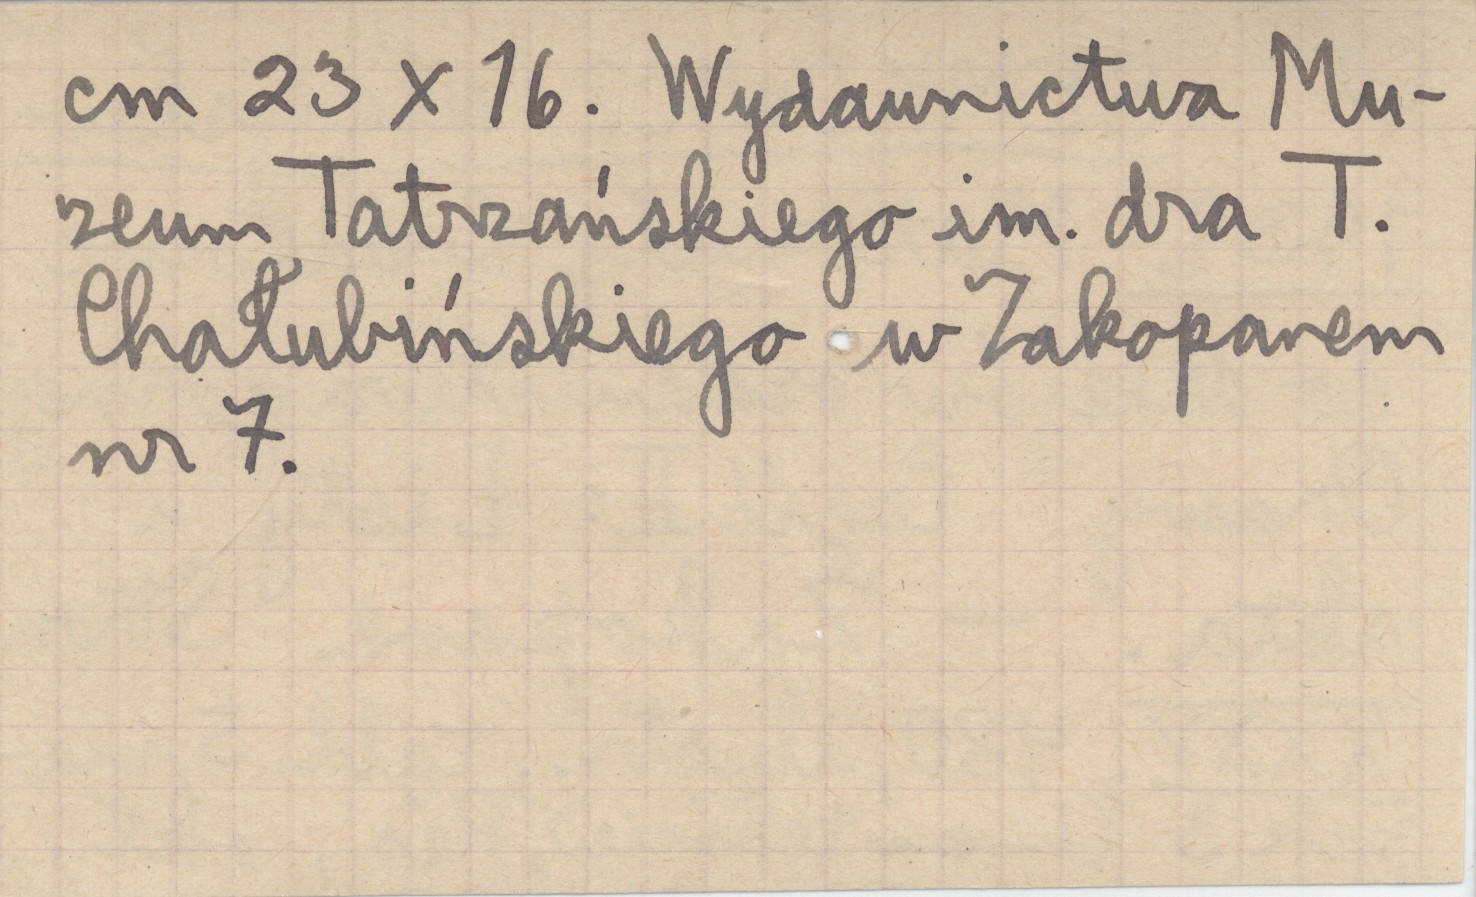 cm 23 x 16. Wydawnictwa Mu-
zeum Tatrzańskiego im. dra T.
Chałubińskiego w Zakopanem
nr 7.